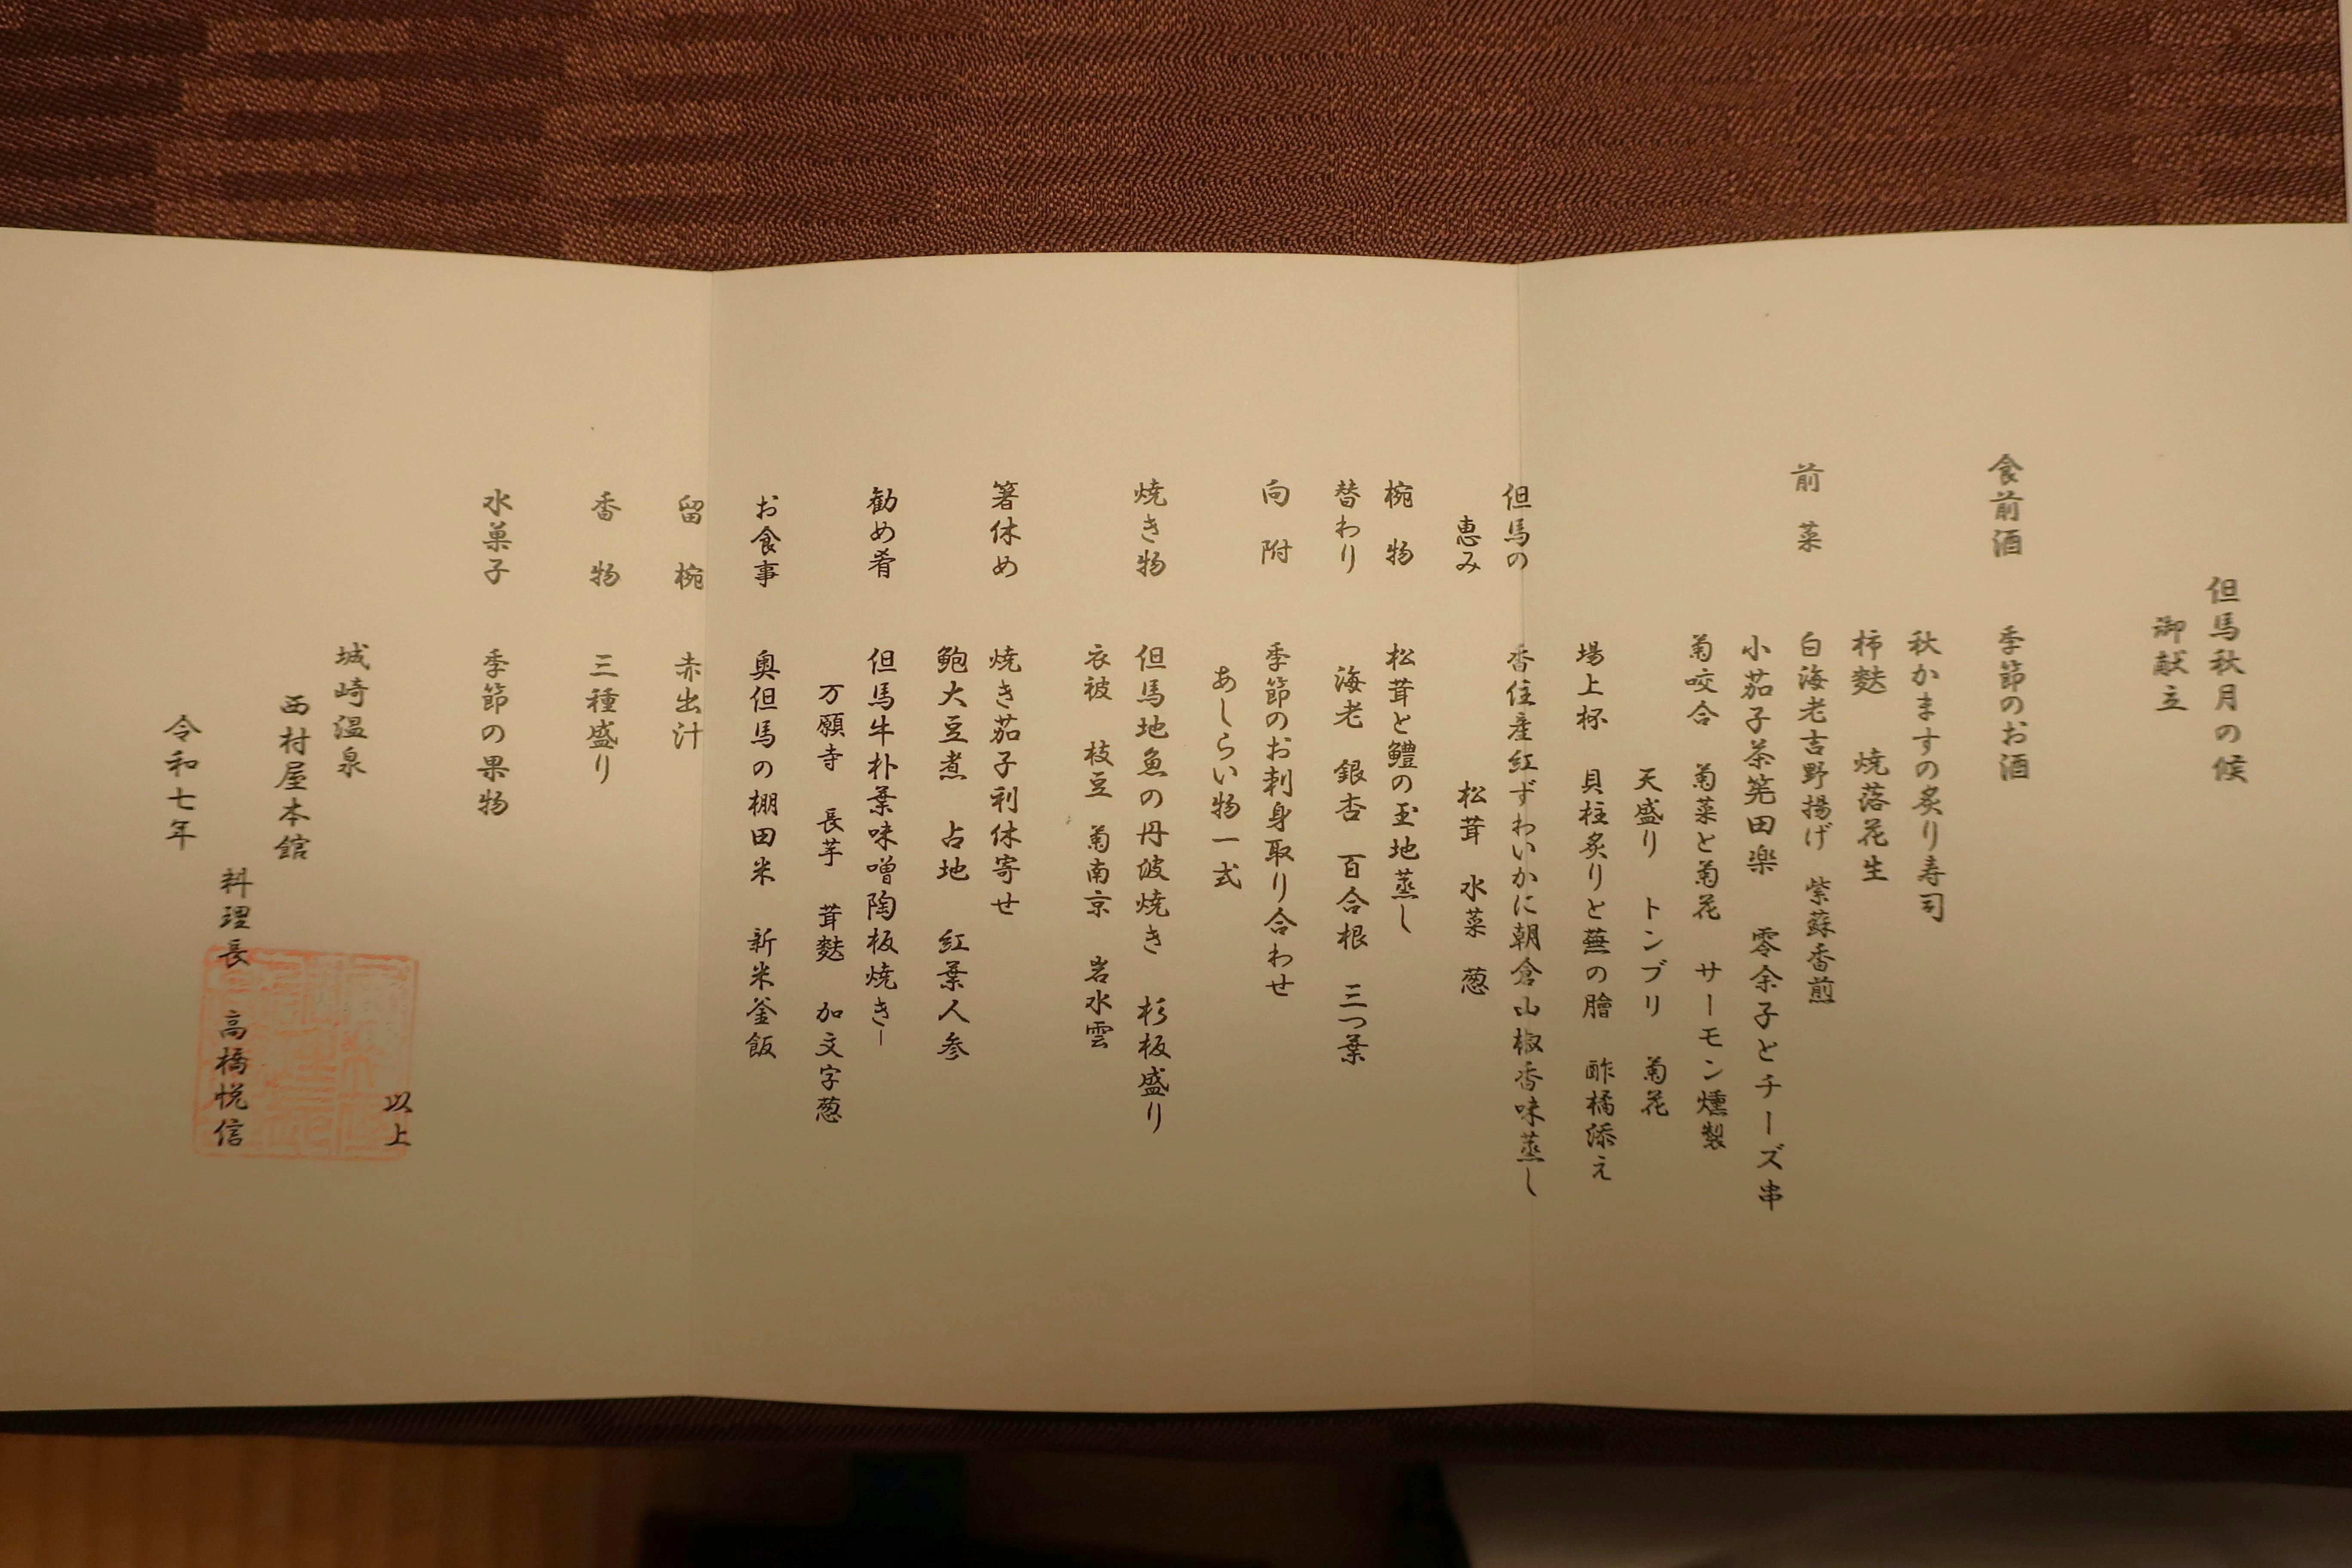 但馬秋月の候
御献立
食前酒　季節のお酒
秋かますの炙り寿司
柿麩　焼落花生
前菜　白海老吉野揚げ　紫蘇香煎
小茄子茶筅田楽　零余子とチーズ串
菊咬合　菊菜と菊花　サーモン燻製
天盛り　トンブリ　菊花
場上杯　貝柱炙りと蕪の膾　酢橘添え
但馬の　香住産紅ずわいかに朝倉山椒香味蒸し
恵み　松茸　水菜　葱
椀物　松茸と鱧の玉地蒸し
替わり　海老　銀杏　百合根　三つ葉
向附　季節のお刺身取り合わせ
あしらい物一式
焼き物　但馬地魚の丹波焼き　杉板盛り
衣被　枝豆　菊南京　岩水雲
箸休め　焼き茄子利休寄せ
鮑大豆煮　占地　紅葉人参
勧め肴　但馬牛朴葉味噌陶板焼き
万願寺　長芋　茸麩　加文字葱
お食事　奥但馬の棚田米　新米釜飯
留椀　赤出汁
香物　三種盛り
水菓子　季節の果物
以上
城崎温泉
西村屋本館
料理長　高橋悦信
令和七年